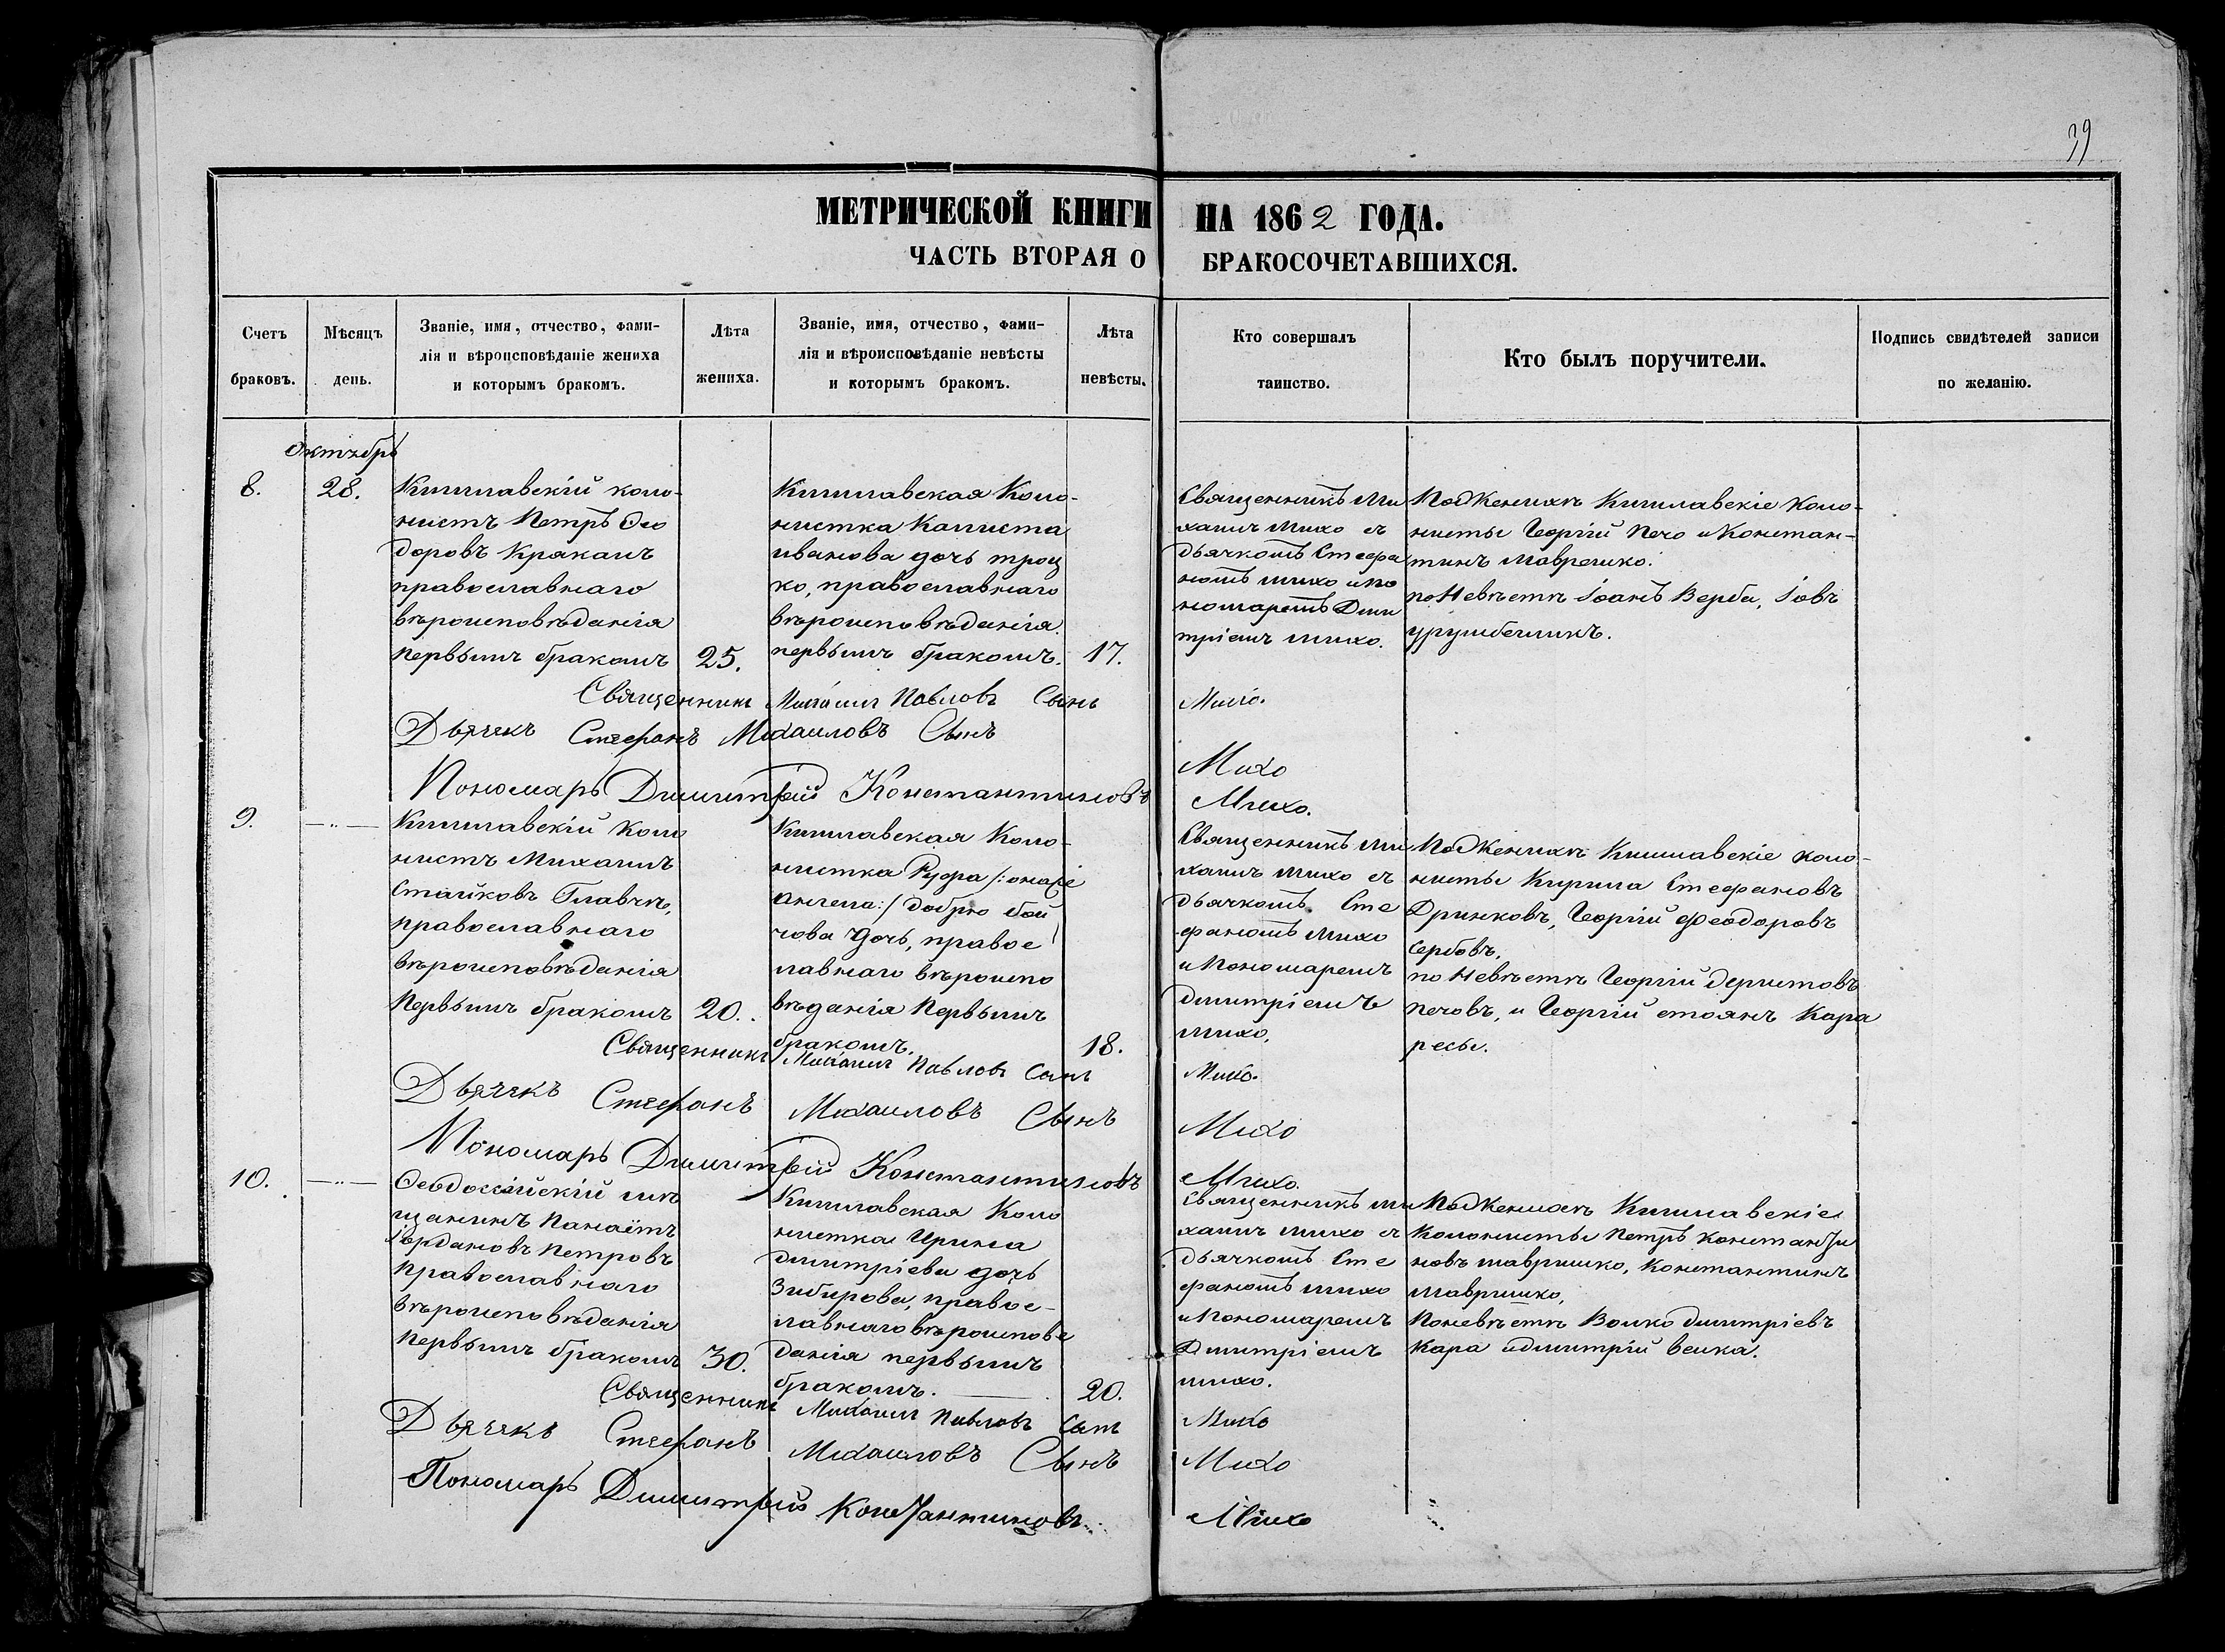 39
МЕТРИЧЕСКОЙ КНИГИ НА 1862 ГОДА.
ЧАСТЬ ВТОРАЯ О БРАКОСОЧЕТАВШИХСЯ.
Счетъ браковъ.
Мѣсяцъ день.
Званіе, имя, отчество, фами-
лія и вѣроисповѣданіе жениха
и которымъ бракомъ.
Лѣта жениха.
Званіе, имя, отчество, фами-
лія и вѣроисповѣданіе невѣсты
и которымъ бракомъ.
Лѣта невѣсты.
Кто совершалъ
таинство.
Кто былъ поручители.
Подпись свидѣтелей записи
по желанію.
Октябрь
8.
28.
Кишлавскій коло-
нистъ Петръ Ѳео
доровъ Крякалъ
православнаго
вѣроисповѣданія
первымъ бракомъ
25.
Кишлавская Коло-
нистка Калиста
иванова дочь троц
ко, православнаго
вѣроисповѣданія.
первымъ бракомъ.
17.
Священникъ Ми
хаилъ Михо съ
дьячкомъ Стефа
номъ михо и по
номаремъ Дми
тріемъ михо.
По Женихѣ Кишлавскіе Коло-
нисты Георгій Печо и Констан-
тинъ Мавремко.
по Невѣстѣ Іоанъ Верба, Іовъ
урумбегликъ.
Священникъ Михаилъ Павловъ Сынъ Михо.
Дьячекъ Стефанъ Михаиловъ Сынъ Михо
Пономарь Димитрій Константиновъ Михо.
9.
—„—
Кишлавскій Коло
нистъ Михаилъ
Стойковъ Главчѣ,
православнаго
вѣроисповѣданія
Первымъ бракомъ
20.
Кишлавская Коло-
нистка Руфа /: онаже
Ангела:/ Добрю бой
чова дочь, правос
лавнаго вѣроиспо
вѣданія Первымъ
бракомъ.
18.
Священникъ Ми
хаилъ Михо съ
дьячкомъ Сте
фаномъ Михо
и Пономаремъ
димитріемъ
михо.
По Женихѣ Кишлавскіе коло-
нисты Кирила Стефановъ
Дринковъ, Георгій Феодоровъ
Сербовъ,
по Невѣстѣ Георгій
Печовъ, и Георгій стоянъ Кара
Священникъ Михаилъ Павловъ Сынъ Михо.
Дьячекъ Стефанъ Михаиловъ Сынъ Михо
Пономарь Димитрій Константиновъ Михо.
10.
—„—
Ѳеодосійскій мѣ
щанинъ Панаіотъ
Іордановъ Петровъ
Православнаго
вѣроисповѣданія
Первымъ бракомъ
30.
Кишлавская Коло
нистка Ирина
Димитріева дочь
Зибирова, правос-
лавнаго вѣроисповѣ
данія первымъ
бракомъ.
20.
Священникъ ми
хаилъ михо съ
дьячкомъ Сте
фаномъ михо
и Пономаремъ
Димитріемъ
михо.
По Женихѣ Кишлавскіе
Колонисты Петръ Константи
новъ мавришко, Константинъ
мавришко,
По невѣстѣ Волко димитріевъ
Кара и димитрій велка.
Священникъ Михаилъ Павловъ Сынъ Михо
Дьячекъ Стефанъ Михаиловъ Сынъ Михо
Пономарь Димитрій Константиновъ Михо